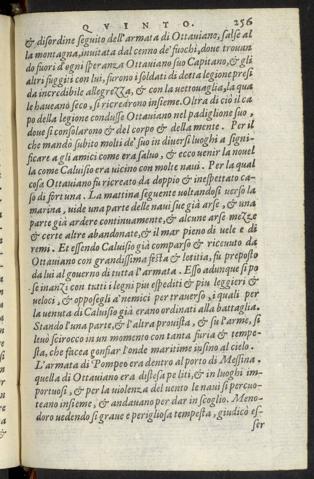 QVINTO. 256
& disordine seguito dell'armata di Ottauiano, salse al
la montagna, inuitata dal cenno de' fuochi, doue trouan
do fuori d'ogni speranza Ottauiano suo Capitano, & gli
altri fuggiti con lui, furono i soldati di detta legione presi
da incredibile allegrezza, & con la uettouaglia, la qua
le haueano seco, si ricrearono insieme. Oltra di ciò il ca
po della legione condusse Ottauiano nel padiglione suo,
doue si consolarono & del corpo & della mente. Per il
che mandò subito molti de' suoi in diuersi luoghi a signi-
ficare a gli amici come era saluo, & ecco uenir la nouel
la come Caluisio era uicino con molte naui. Per la qual
cosa Ottauiano fu ricreato da doppio & inespettato ca-
so di fortuna. La mattina seguente uoltandosi uerso la
marina, uide una parte delle naui sue già arse, & una
parte già ardere continuamente, & alcune arse mezze
& certe altre abandonate, & il mar pieno di uele e di
remi. Et essendo Caluisio già comparso & riceuuto da
Ottauiano con grandissima festa & letitia, fu preposto
da lui al gouerno di tutta l'armata. Esso adunque si po
se inanzi con tutti i legni piu espediti & piu leggieri &
ueloci, & opposegli a' nemici per trauerso, i quali per
la uenuta di Caluisio già erano ordinati alla battaglia.
Stando l'una parte, & l'altra prouista, & su l'arme, si
leuò scirocco in un momento con tanta furia & tempe-
sta, che facea gonfiar l'onde maritime insino al cielo.
L'armata di Pompeo era dentro al porto di Messina.
quella di Ottauiano era distesa pe liti, & in luoghi im-
portuosi, & per la uiolenza del uento le naui si percuo-
teano insieme, & andauano per dar in scoglio. Meno-
doro uedendo si graue e perigliosa tempesta, giudicò es-
ser